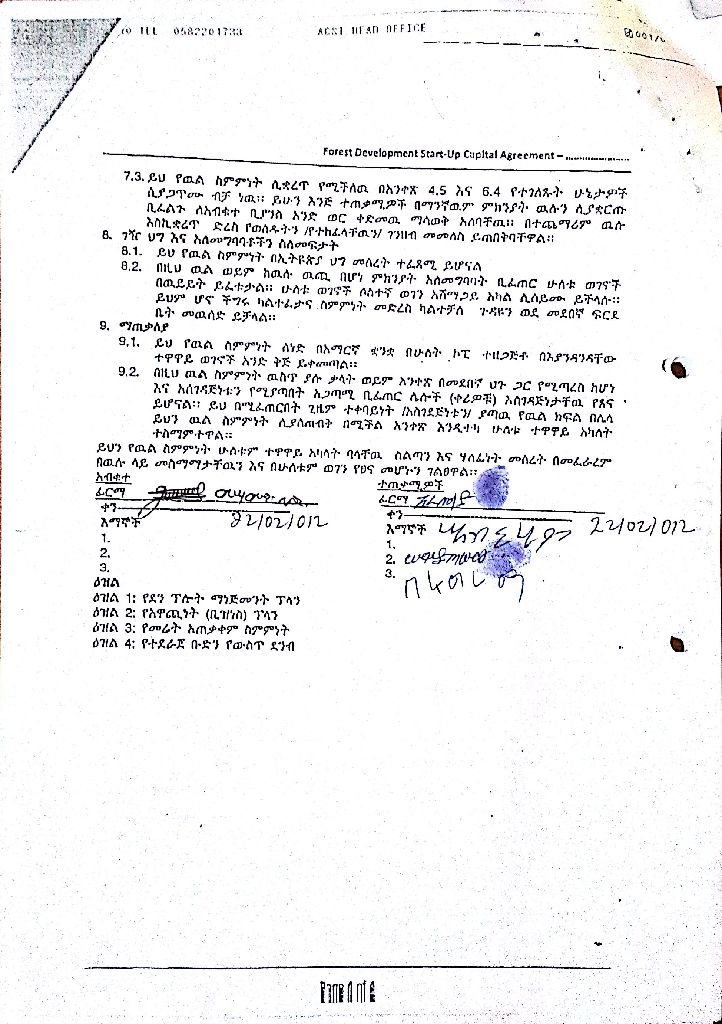 TEL 0582201733 ACSI HEAD OFFICE
Forest Development Start-Up Capital Agreement –
7.3. ይህ የዉል ስምምነት ሲቋረጥ የሚችለዉ በአንቀጽ 4.5 እና 6.4 የተገለጹት ሁኔታዎች
ሲያጋጥሙ ብቻ ነዉ፡፡ ይሁን እንጅ ተጠቃሚዎች በማንኛዉም ምክንያት ዉሉን ሲያቋርጡ
ቢፈልጉ ለአብቁተ ቢያንስ አንድ ወር ቀድመዉ ማሳወቅ አለባቸዉ፡፡ በተጨማሪም ዉሉ
እስኪቋረጥ ድረስ የወሰዱትን /የተከፈላቸዉን/ ገንዘብ መመለስ ይጠበቅባቸዋል፡፡
8. ገዥ ህግ እና አለመግባባቶችን ስለመፍታት
8.1. ይህ የዉል ስምምነት በኢትዮጵያ ህግ መሰረት ተፈጻሚ ይሆናል
8.2. በዚህ ዉል ወይም ከዉሉ ዉጪ በሆነ ምክንያት አለመግባባት ቢፈጠር ሁለቱ ወገኖች
በዉይይት ይፈቱታል፡፡ ሁለቱ ወገኖች ሶስተኛ ወገን አሸማጋይ አካል ሊሰይሙ ይችላሉ፡፡
ይህም ሆኖ ችግሩ ካልተፈታና ስምምነት መድረስ ካልተቻለ ጉዳዩን ወደ መደበኛ ፍርድ
ቤት መዉሰድ ይቻላል፡፡
9. ማጠቃለያ
9.1. ይህ የዉል ስምምነት ሰነድ በአማርኛ ቋንቋ በሁለት ኮፒ ተዘጋጅቶ በእያንዳንዳቸው
ተዋዋይ ወገኖች አንድ ቅጅ ይቀመጣል፡፡
9.2. በዚህ ዉል ስምምነት ዉስጥ ያሉ ቃላት ወይም አንቀጽ በመደበኛ ህጉ ጋር የሚጣረስ ከሆነ
እና አስገዳጅነቱን የሚያጣበት አጋጣሚ ቢፈጠር ሌሎች (ቀሪዎቹ) አስገዳጅነታቸዉ የጸና
ይሆናል፡፡ ይህ በሚፈጠርበት ጊዜም ተቀባይነት /አስገዳጅነቱን/ ያጣዉ የዉል ክፍል በሌላ
ይህን ዉል ስምምነት ሊያስጠብቅ በሚችል አንቀጽ እንዲተካ ሁለቱ ተዋዋይ አካላት
ተስማምተዋል፡፡
ይህን የዉል ስምምነት ሁለቱም ተዋዋይ አካላት ባላቸዉ ስልጣን እና ሃላፊነት መሰረት በመፈራረም
በዉሉ ላይ መስማማታቸዉን እና በሁለቱም ወገን የፀና መሆኑን ገልፀዋል፡፡
አብቁተ
ፊርማ
ቀን 22/02/012
እማኞች
1.
2.
3.
ተጠቃሚዎች
ፊርማ
ቀን 22/02/012
እማኞች
1.
2.
3.
ዕዝል
ዕዝል 1: የደን ፕሎት ማኔጅመንት ፕላን
ዕዝል 2: የአዋጪነት (ቢዝነስ) ፕላን
ዕዝል 3: የመሬት አጠቃቀም ስምምነት
ዕዝል 4: የተደራጀ ቡድን የውስጥ ደንብ